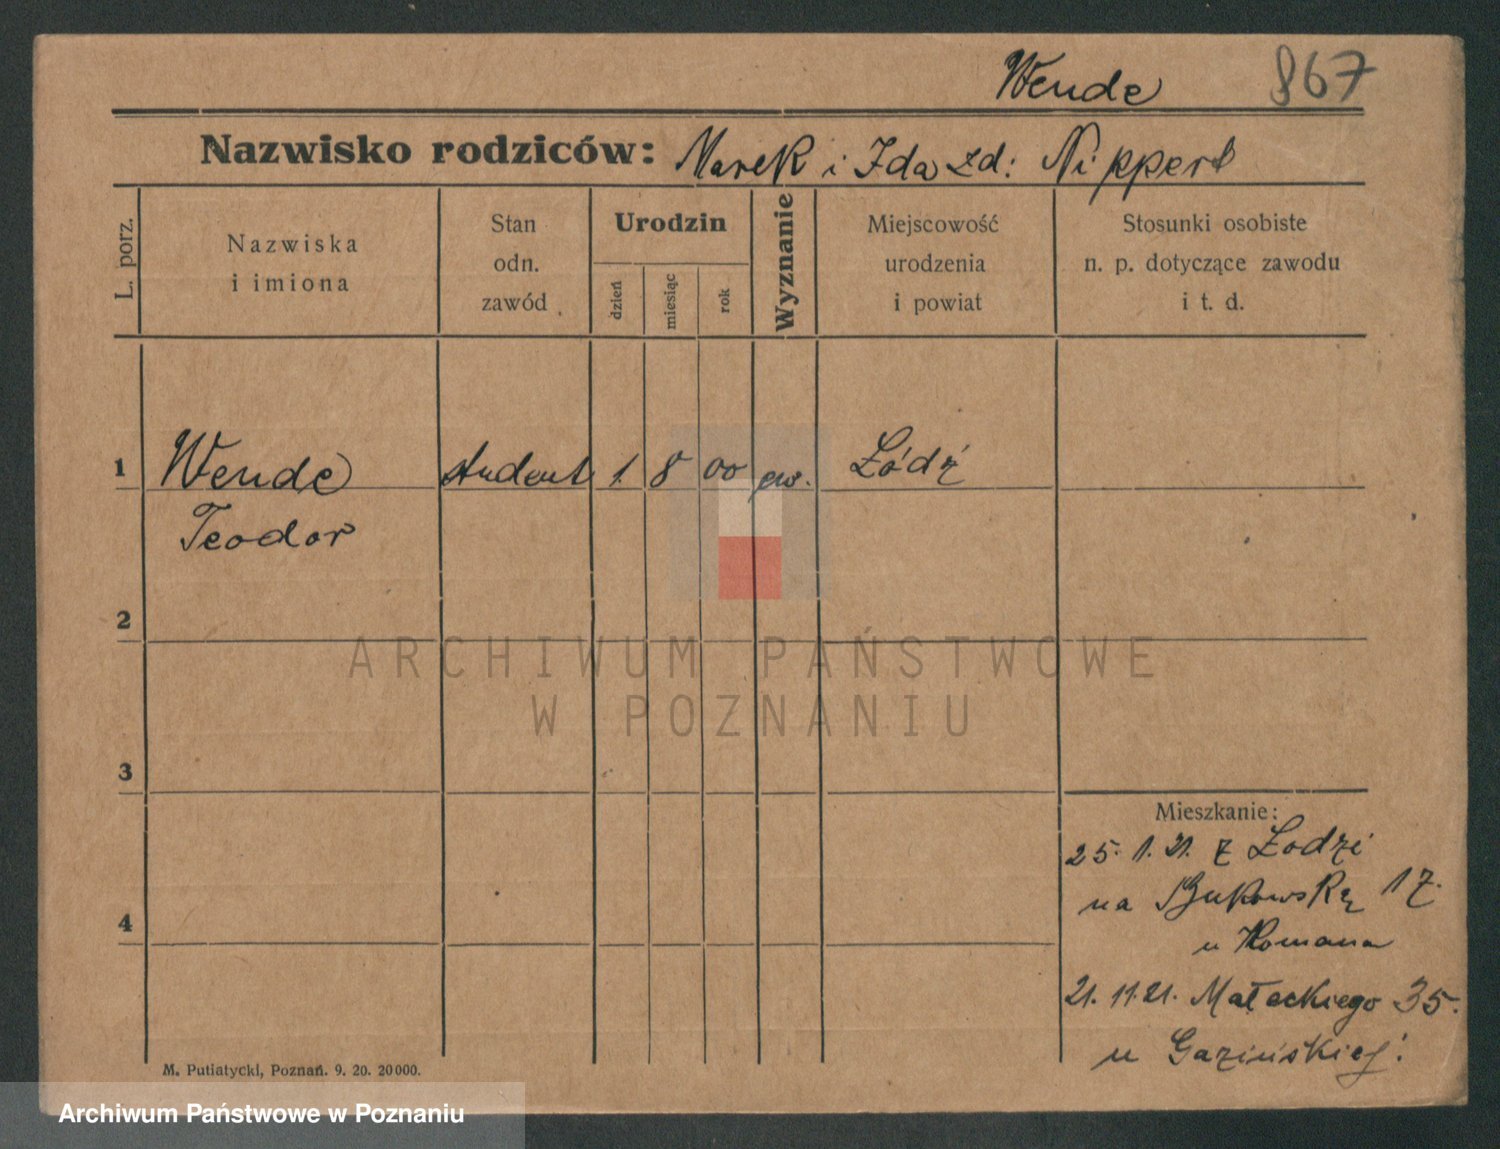 Wende 867
Nazwisko rodziców: Marek i Ida zd: Nippert
L. porz.
Nazwiska
i imiona
Stan
odn.
zawód
Urodzin
dzień
miesiąc
rok
Wyznanie
Miejscowość
urodzenia
i powiat
Stosunki osobiste
n. p. dotyczące zawodu
i t. d.
1 Wende student 1. 8 00 ew. Łódź
Teodor
2
ARCHIWUM PAŃSTWOWE
W POZNANIU
3
Mieszkanie:
25. 1. 21. z Łodzi
na Bukowską 17.
u Romana
4
21. 11. 21. Małeckiego 35.
u Gazińskiej:
M. Putiatycki, Poznań. 9. 20. 20000.
Archiwum Państwowe w Poznaniu